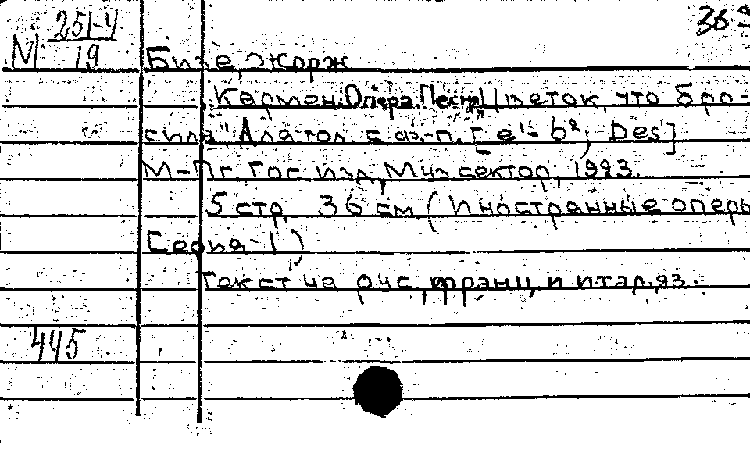 М 251-4
19
369
Бизе, Жорж
Кармен. Опера. Песня "Цветок, что бро-
сила" Для гол. с ф-п. [e¹- b², Des]
М-Пг, Гос. изд, Муз сектор, 1923.
5 стр, 36 см (Иностранные оперы
Серия-1)
Текст на рус, франц, и итал, яз.
445